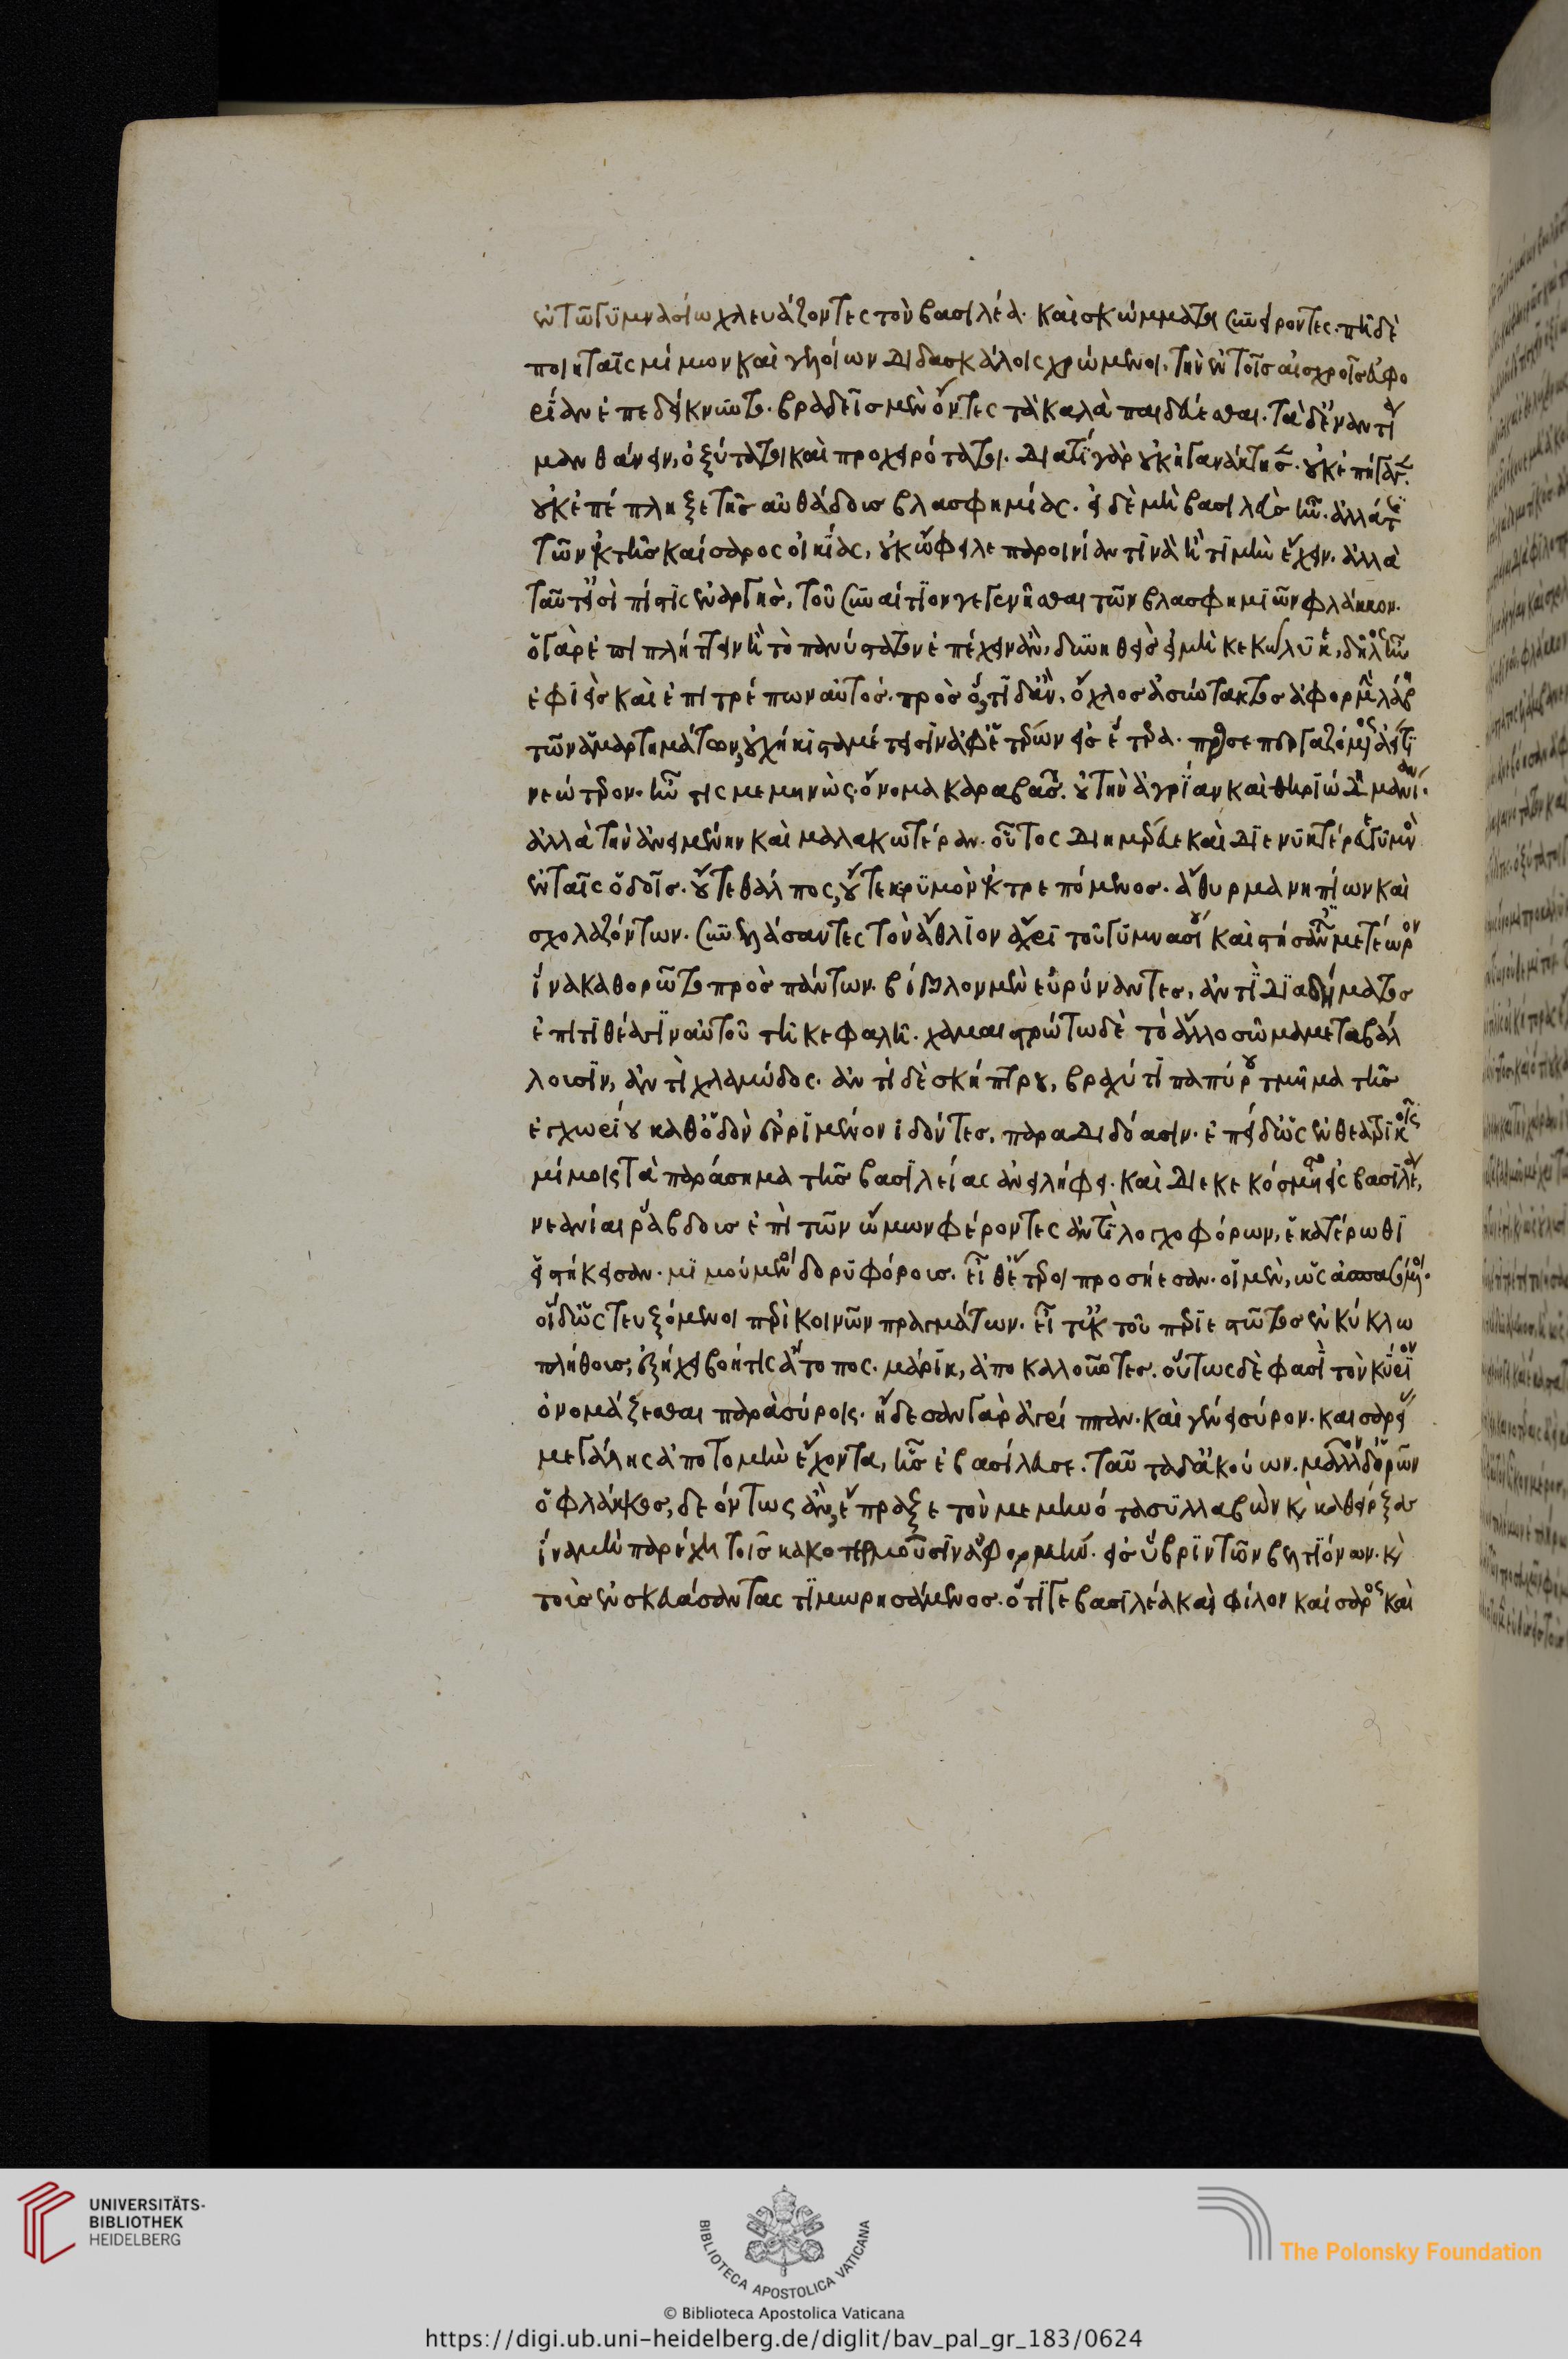 ἐν τῶ γυμνασίω χλευάζοντες τὸν βασιλέα. καὶ σκώμματα συνείροντες. πῆ δὲ
ποιηταῖς μίμων καὶ γελοίων διδασκάλοις χρώμενοι, τὴν ἐν τοῖς αἰσχροῖς ἀφο
ρίαν ἐπεδείκνυντο. βραδεῖς μὲν ὄντες τὰ καλὰ παιδεύεσθαι. τὰ δ' ἐναντία
μανθάνειν, ὀξύτατοι καὶ προχειρότατοι. διατί γὰρ οὐκ ἠγανάκτησεν. οὐκ ἐπήγαγεν.
οὐκ ἐπέπληξε τῆς αὐθάδους βλασφημίας. εἰ δὲ μὴ βασιλεὺς ἦν. ἀλλά τοι
τῶν ἐκ τῆς καίσαρος οἰκίας, οὐκ ὤφειλε παροινίαν τινὰ ἢ τιμὴν ἔχειν. ἀλλὰ
ταῦτ' εἰσὶ πίστις ἐναργὴς, τοῦ συναίτιον γεγενῆσθαι τῶν βλασφημιῶν φλάκκον.
ὁ γὰρ ἐπιπλήττειν ἢ τὸ πανύστατον ἐπέχειν ἂν, διωχθεὶς εἰ μὴ κεκωλυκε, δῆλος ἦν
ἐφιεὶς καὶ ἐπιτρέπων αὐτός. πρὸς ὅ,τι δἂν, ὄχλος ἀσύντακτος ἀφορμὴν λάβη
τῶν ἁμαρτημάτων, οὐχ ἥκιστα μέτεισιν ἀφ' ἑτέρων εἰς ἕτερα. προσεπεργαζόμενος ἀεί τι
νεώτερον. ἦν τις μεμηνὼς ὄνομα καραβᾶς. οὐ τὴν ἀγρίαν καὶ θηριώδη μανίαν.
ἀλλὰ τὴν ἀνειμένην καὶ μαλακωτέραν. οὗτος διημέρευε καὶ διενυκτέρευε γυμνὸς
ἐν ταῖς ὁδοῖς. οὔτε θάλπος, οὔτε κρυμὸν ἐκτρεπόμενος. ἄθυρμα νηπίων καὶ
σχολαζόντων. συνελάσαντες τὸν ἄθλιον ἄχρι τοῦ γυμνασίου καὶ στήσαντες μετέωρον
ἵνα καθορῶτο πρὸς πάντων. βίβλον μὲν εὐρύναντες, ἀντὶ διαδήματος
ἐπιτιθέασιν αὐτοῦ τῆ κεφαλῆ. χαμαιστρώτω δὲ τὸ ἄλλο σῶμα μεταβάλ
λουσιν, ἀντὶ χλαμύδος. ἀντὶ δὲ σκήπτρου, βραχύ τι παπύρου τμῆμα τῆς
ἐγχωρίου καθ' ὁδὸν ἐρριμένον ἰδόντες, παραδιδόασιν. ἐπεὶ δ' ὡς ἐν θεατρικοῖς
μίμοις τὰ παράσημα τῆς βασιλείας ἀνειλήφει. καὶ διεκεκόσμητο εἰς βασιλέα,
νεανίαι ῥάβδους ἐπὶ τῶν ὤμων φέροντες ἀντὶ λογχοφόρων, ἑκατέρωθι
εἱστήκεισαν. μιμούμενοι δορυφόρους. εἶθ' ἕτεροι προσήεσαν. οἱ μὲν, ὡς ἀσπασόμενοι.
οἱ δ' ὡς τευξόμενοι περὶ κοινῶν πραγμάτων. εἶτ' ἐκ τοῦ περιεστῶτος ἐν κύκλω
πλήθους, ἐξήχει βοή τις ἄτοπος. μάριν, ἀποκαλούντες. οὕτως δὲ φασὶ τὸν κύριον
ὀνομάζεσθαι παρὰ σύροις. ἤδεσαν γὰρ ἀγρίππαν. καὶ γένει σύρον. καὶ συρίας
μεγάλης ἀποτομὴν ἔχοντα, ἧς ἐβασίλευσε. ταῦτα δ' ἀκούων. μᾶλλον δ' ὁρῶν
ὁ φλάκκος, δεόντως ἂν, ἔπραξε τὸν μεμηνότα συλλαβὼν κ(αὶ) καθείρξας
ἵνα μὴ παρέχη τοῖς κακοτομοῦσιν ἀφορμὴν. εἰς ὕβριν τῶν βελτιόνων. κ(αὶ)
τοὺς ἐνσκευάσαντας τιμωρησάμενος. ὅτι γε βασιλέα καὶ φίλον καίσαρος καὶ
UNIVERSITÄTS-
BIBLIOTHEK
HEIDELBERG
BIBLIOTECA APOSTOLICA VATICANA
The Polonsky Foundation
© Biblioteca Apostolica Vaticana
https://digi.ub.uni-heidelberg.de/diglit/bav_pal_gr_183/0624